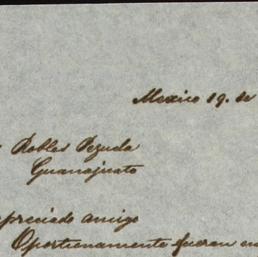 Mexico 19. de
Robles Pezuela
Guanajuato
apreciado amigo
Oportunamente fueron en